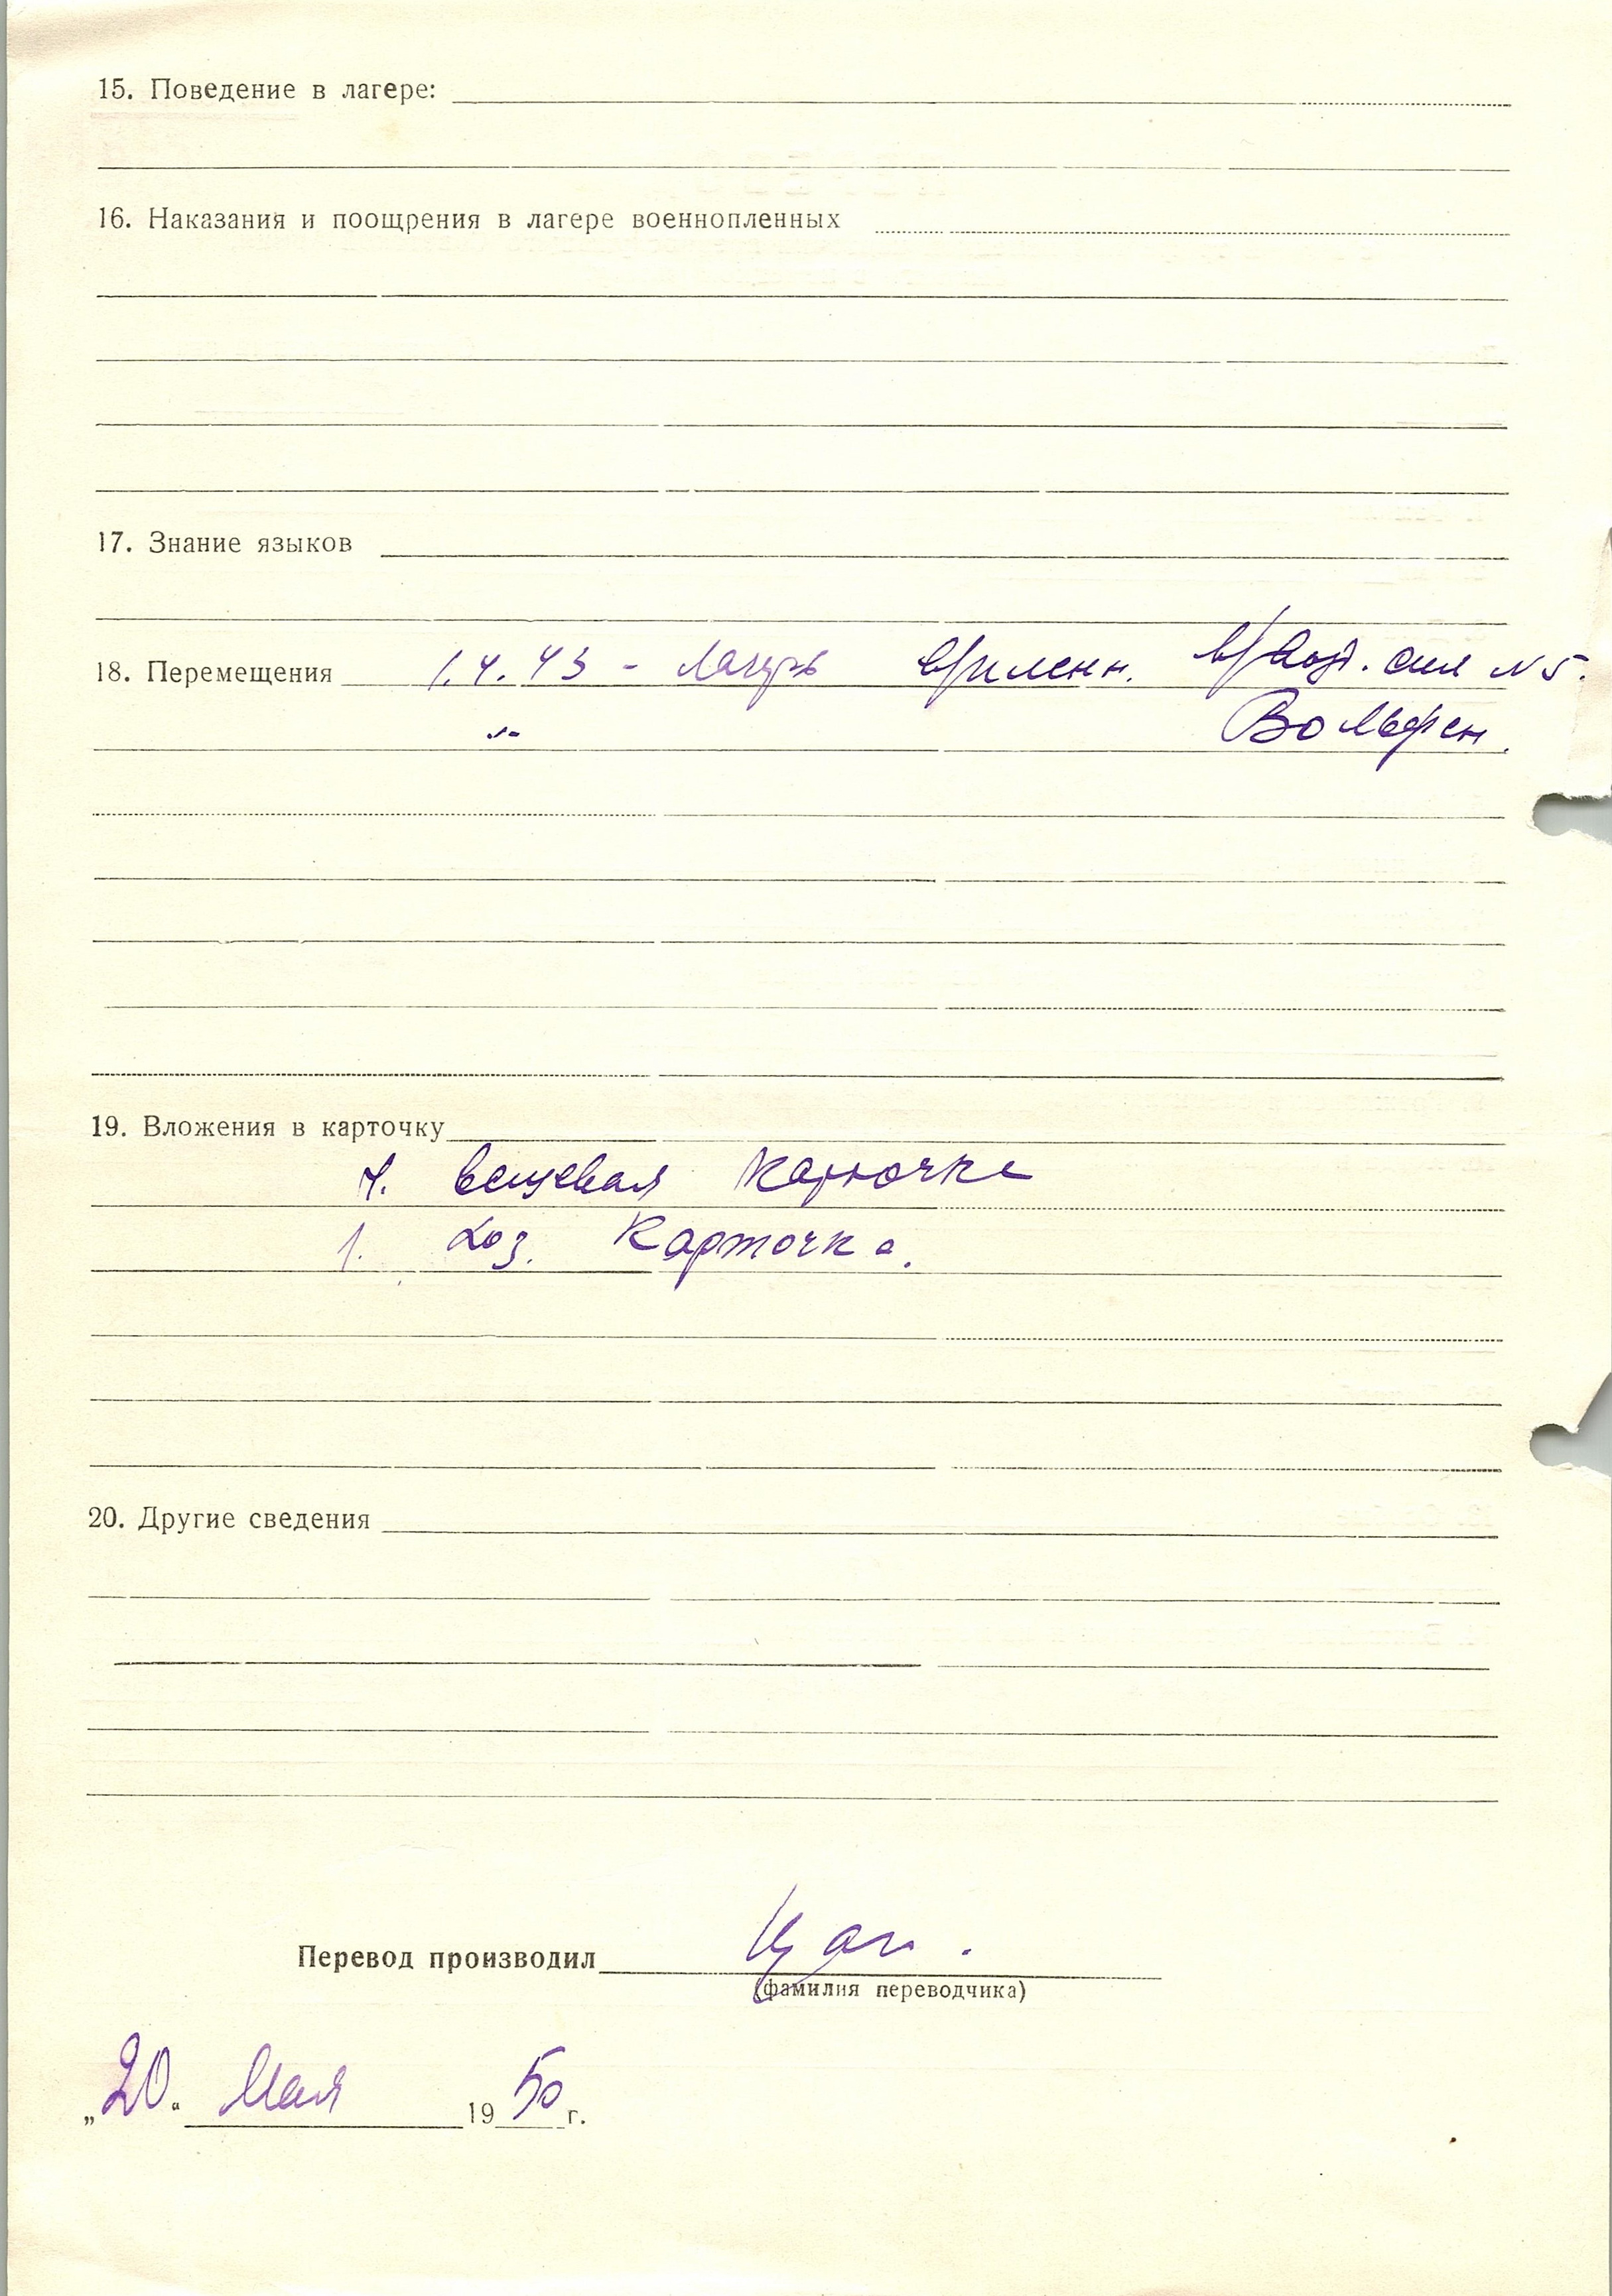 15. Поведение в лагере:
16. Наказания и поощрения в лагере военнопленных
17. Знание языков
18. Перемещения 1.4.43 - лагерь N 5.
Вольфен.
19. Вложения в карточку
1. вещевая карточка
1. карточка.
20. Другие сведения
Перевод производил
(фамилия переводчика)
„20“ Мая 1950 г.